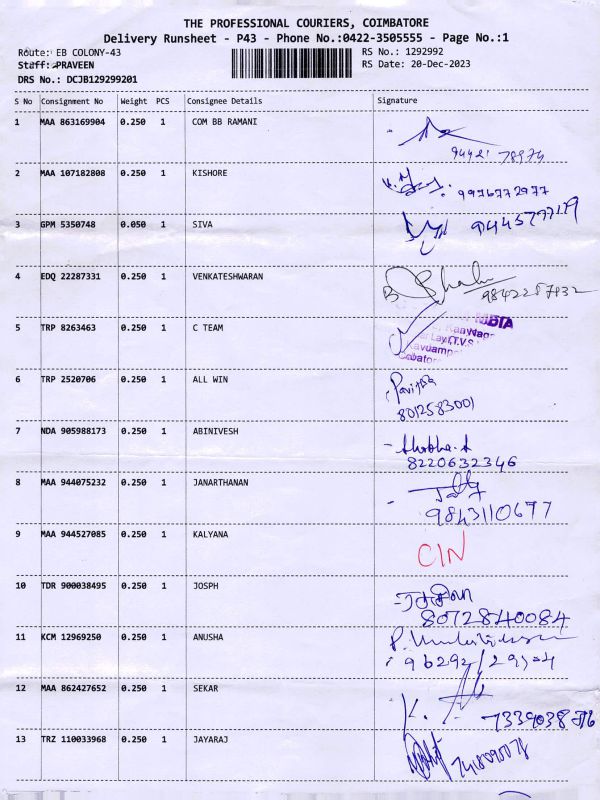 THE PROFESSIONAL COURIERS, COIMBATORE
Delivery Runsheet - P43 - Phone No.:0422-3505555 - Page No.:1
Route: EB COLONY-43 RS No.: 1292992
Staff: PRAVEEN RS Date: 20-Dec-2023
DRS No.: DCJB129299201
S No Consignment No Weight PCS Consignee Details Signature
1 MAA 863169904 0.250 1 COM BB RAMANI
2 MAA 107182808 0.250 1 KISHORE
9976772977
3 GPM 5350748 0.050 1 SIVA
4 EDQ 22287331 0.250 1 VENKATESHWARAN
5 TRP 8263463 0.250 1 C TEAM
6 TRP 2520706 0.250 1 ALL WIN
8012583001
7 NDA 905988173 0.250 1 ABINIVESH
8220632346
8 MAA 944075232 0.250 1 JANARTHANAN
9843110677
9 MAA 944527085 0.250 1 KALYANA CIN
10 TDR 900038495 0.250 1 JOSPH
8072840084
11 KCM 12969250 0.250 1 ANUSHA
12 MAA 862427652 0.250 1 SEKAR
13 TRZ 110033968 0.250 1 JAYARAJ